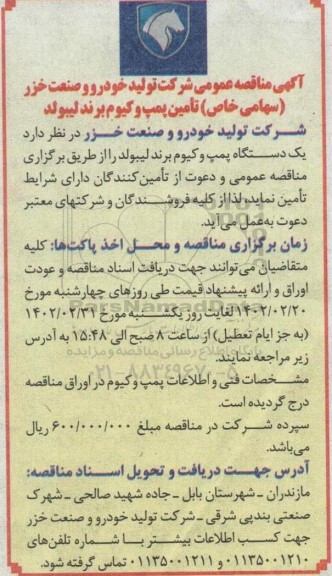 آگهی مناقصه عمومی شرکت تولید خودرو و صنعت خزر
(سهامی خاص) تأمین پمپ وکیوم برند لیبولد
شرکت تولید خودرو و صنعت خزر در نظر دارد
یک دستگاه پمپ وکیوم برند لیبولد را از طریق برگزاری
مناقصه عمومی و دعوت از تأمین‌کنندگان دارای شرایط
تأمین نماید، لذا از کلیه فروشندگان و شرکتهای معتبر
دعوت به‌عمل می‌آید.
زمان برگزاری مناقصه و محل اخذ پاکت‌ها: کلیه
متقاضیان می‌توانند جهت دریافت اسناد مناقصه و عودت
اوراق و ارائه پیشنهاد قیمت طی روزهای چهارشنبه مورخ
۱۴۰۲/۰۲/۲۰ لغایت روز یکشنبه مورخ ۱۴۰۲/۰۲/۳۱
(به جز ایام تعطیل) از ساعت ۸ صبح الی ۱۵:۴۸ به آدرس
زیر مراجعه نمایند.
مشخصات فنی و اطلاعات پمپ وکیوم در اوراق مناقصه
درج گردیده است.
سپرده شرکت در مناقصه مبلغ ۶۰۰/۰۰۰/۰۰۰ ریال
می‌باشد.
آدرس جهت دریافت و تحویل اسناد مناقصه:
مازندران ـ شهرستان بابل ـ جاده شهید صالحی ـ شهرک
صنعتی بندپی شرقی ـ شرکت تولید خودرو و صنعت خزر
جهت کسب اطلاعات بیشتر با شماره تلفن‌های
۰۱۱۳۵۰۰۱۲۱۰ و ۰۱۱۳۵۰۰۱۲۱۱ تماس گرفته شود.
ParsNamadData
۰۲۱-۸۸۳۴۹۶۷۰-۵